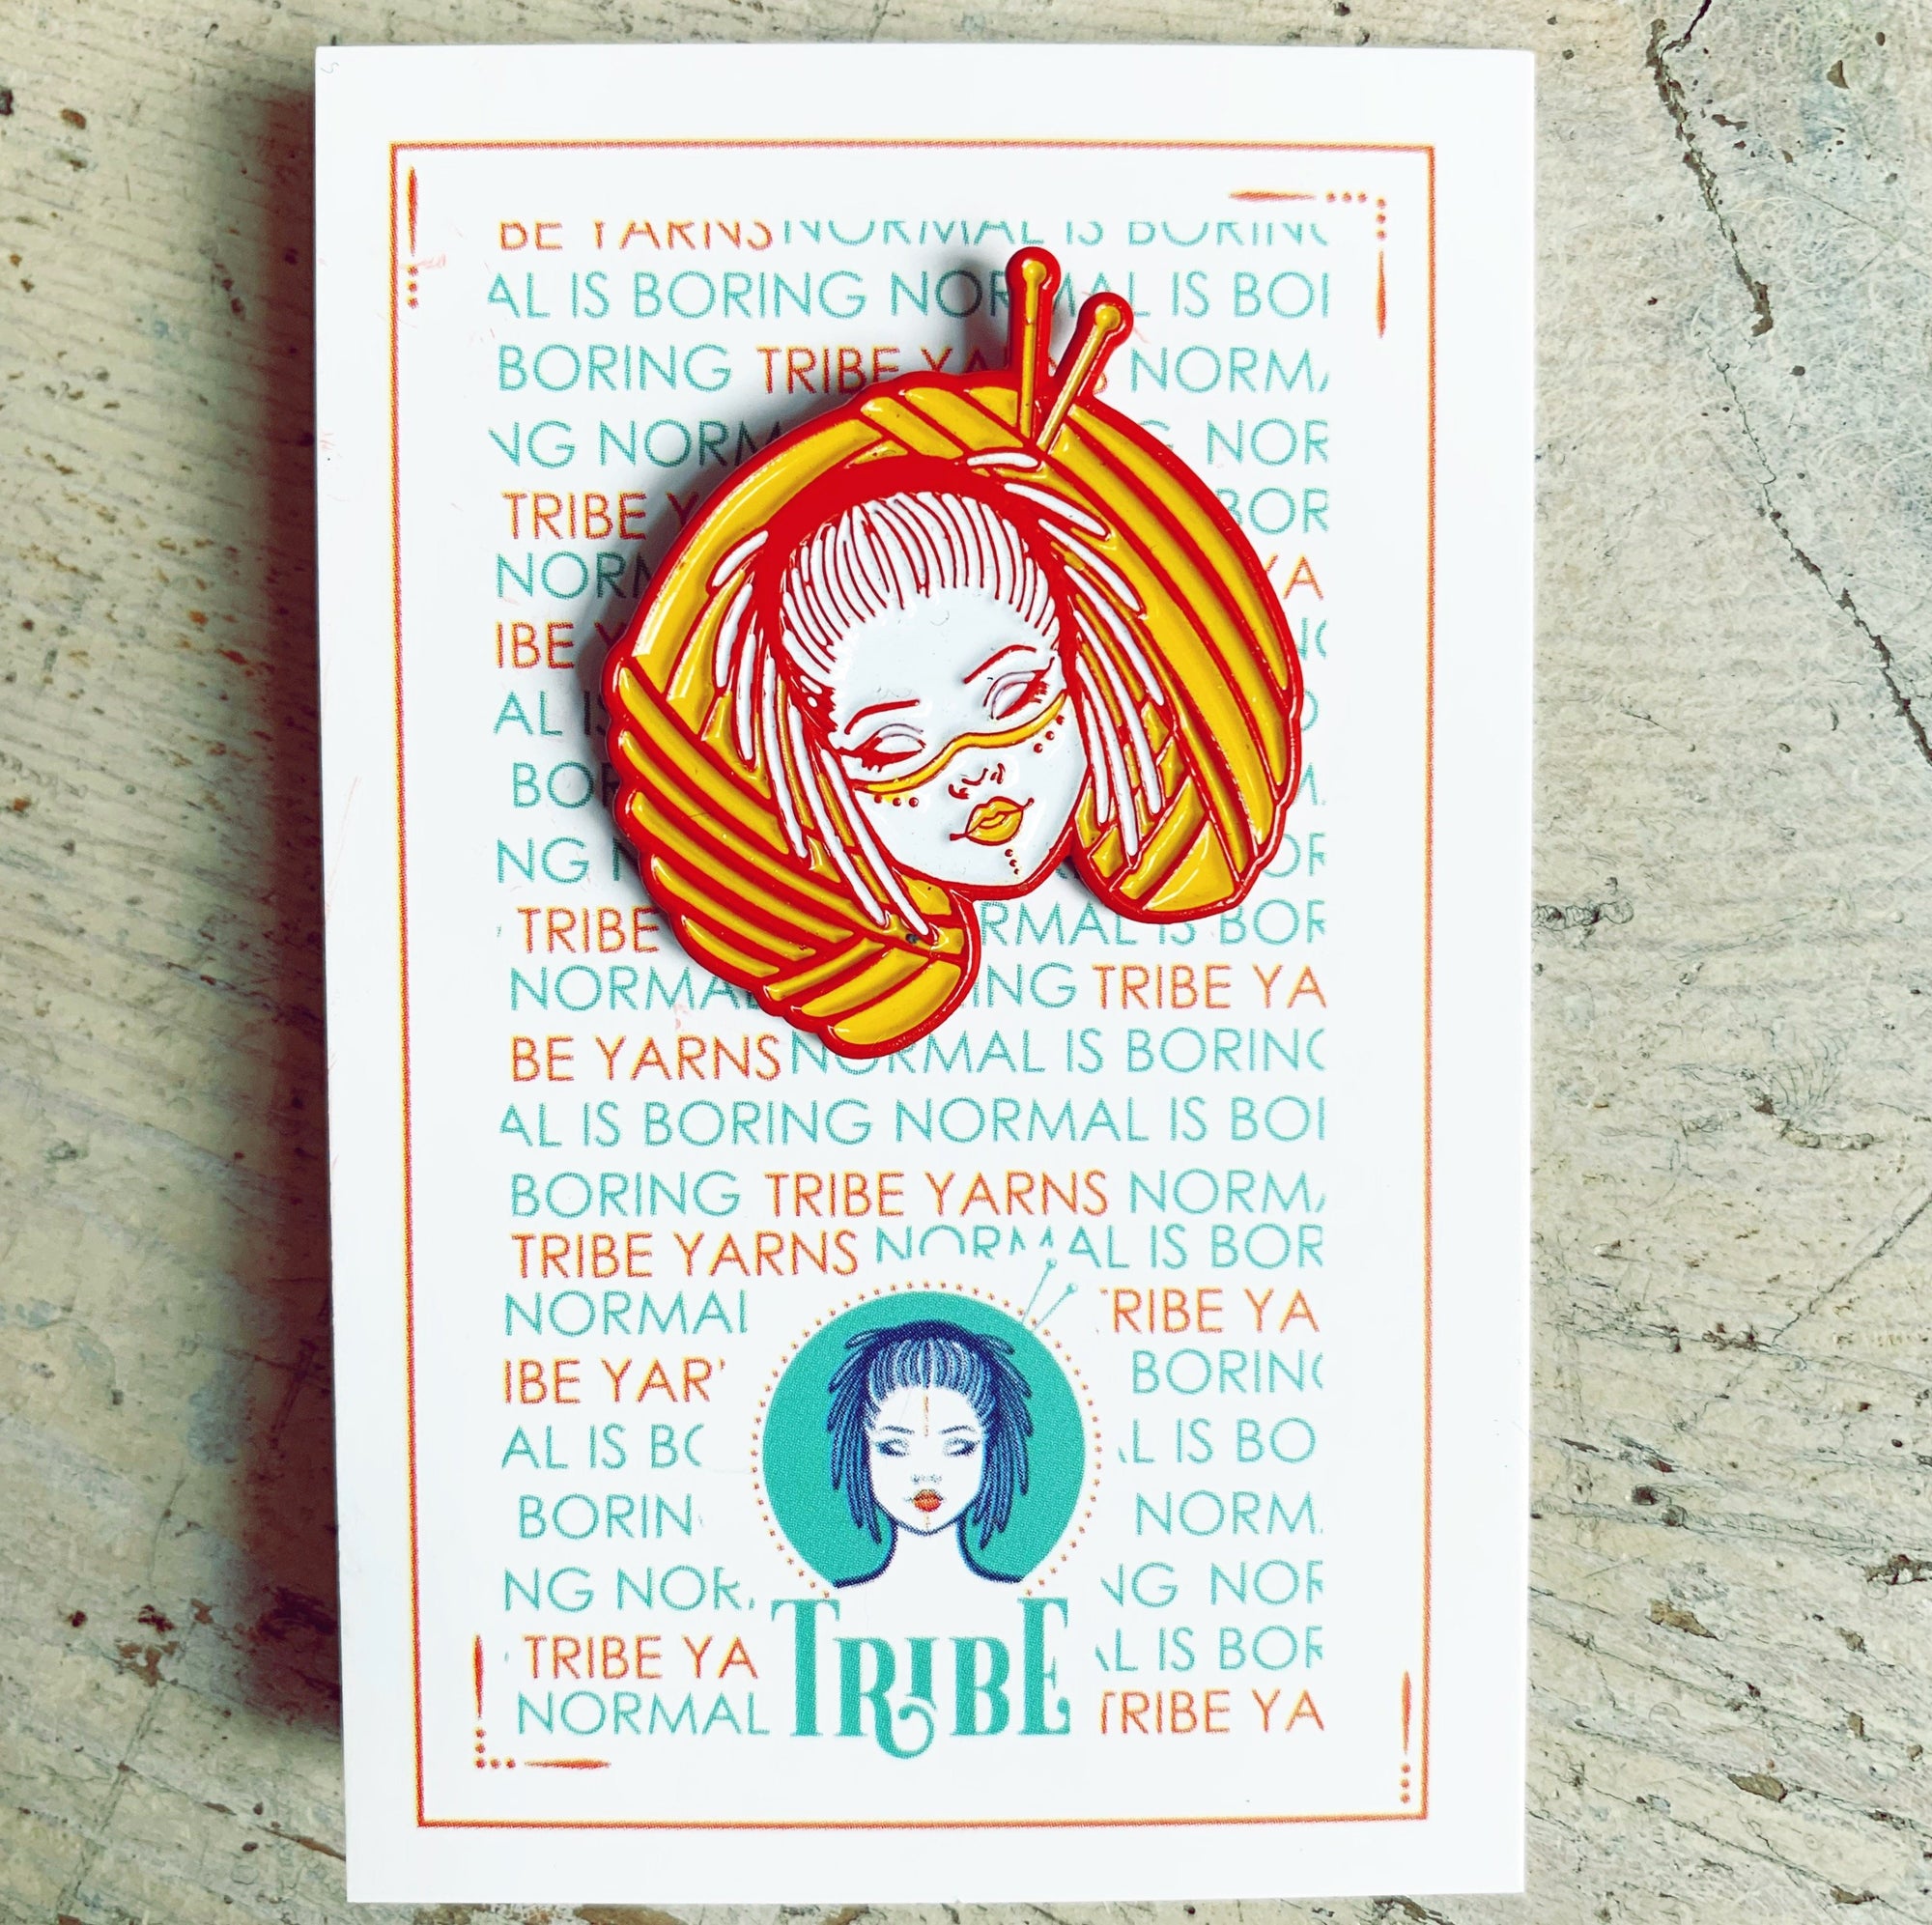 BE YARNS NORMAL IS BORING
AL IS BORING NORMAL IS BOI
BORING TRIBE YARNS NORMA
NG NORM G NOR
TRIBE Y BOR
NORM YA
IBE Y
AL IS
BOR
NG OR
TRIBE RMAL IS BOR
NORMAL ING TRIBE YA
BE YARNS NORMAL IS BORING
AL IS BORING NORMAL IS BOI
BORING TRIBE YARNS NORMA
TRIBE YARNS NORMAL IS BOR
NORMAL TRIBE YA
IBE YAR BORING
AL IS BO L IS BO
BORIN NORM
NG NOR NG NOR
TRIBE YA L IS BOR
NORMAL TRIBE YA
TRIBE